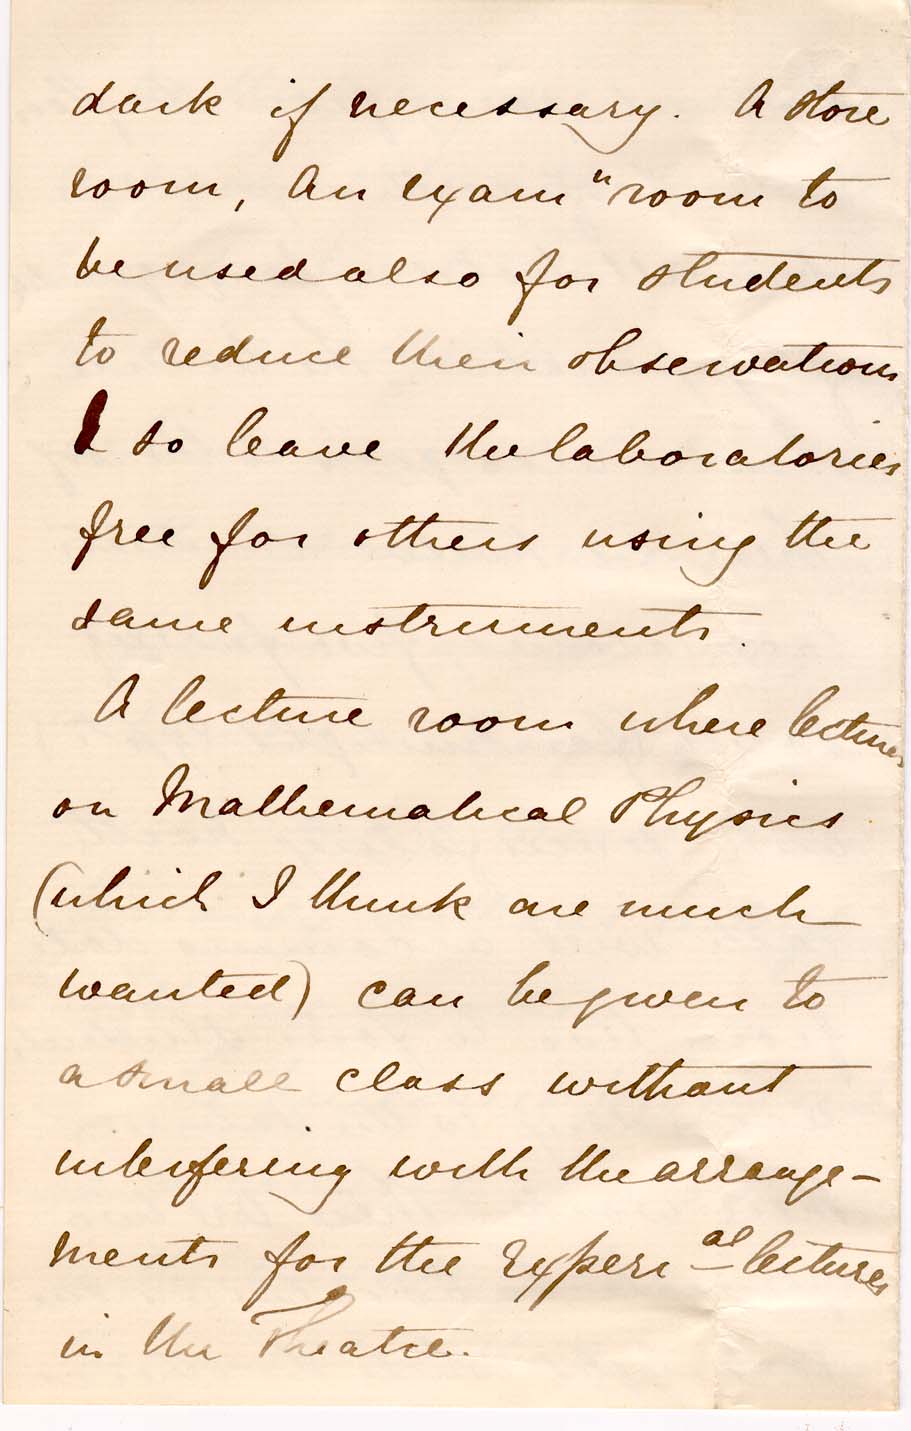 dark if necessary. A store
room, An examⁿ room to
be used also for students
to reduce their observations
& so leave the laboratories
free for others using the
same instruments.
A lecture room where lectures
on Mathematical Physics
(which I think are much
wanted) can be given to
a small class without
interfering with the arrange-
ments for the Experiᵃˡ lectures
in the Theatre.